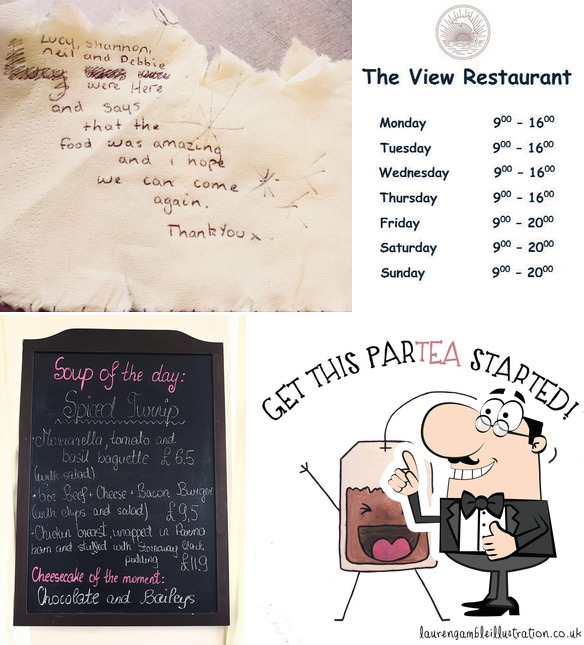 Lucy, Shannon,
Neil and Debbie
were Here
and says
that the
food was amazing
and i hope
we can come
again.
Thank You x
The View Restaurant
Monday 9⁰⁰ - 16⁰⁰
Tuesday 9⁰⁰ - 16⁰⁰
Wednesday 9⁰⁰ - 16⁰⁰
Thursday 9⁰⁰ - 16⁰⁰
Friday 9⁰⁰ - 20⁰⁰
Saturday 9⁰⁰ - 20⁰⁰
Sunday 9⁰⁰ - 20⁰⁰
Soup of the day:
Spiced Turnip
·Mozzarella, tomato and
basil baguette £6.5
(with salad)
·6oz Beef + Cheese + Bacon Burger
(with chips and salad) £9,5
·Chicken breast, wrapped in Parma
ham and stuffed with Stornoway Black
pudding £11.9
Cheesecake of the moment:
Chocolate and Baileys
GET THIS PARTEA STARTED!
laurengambleillustration.co.uk